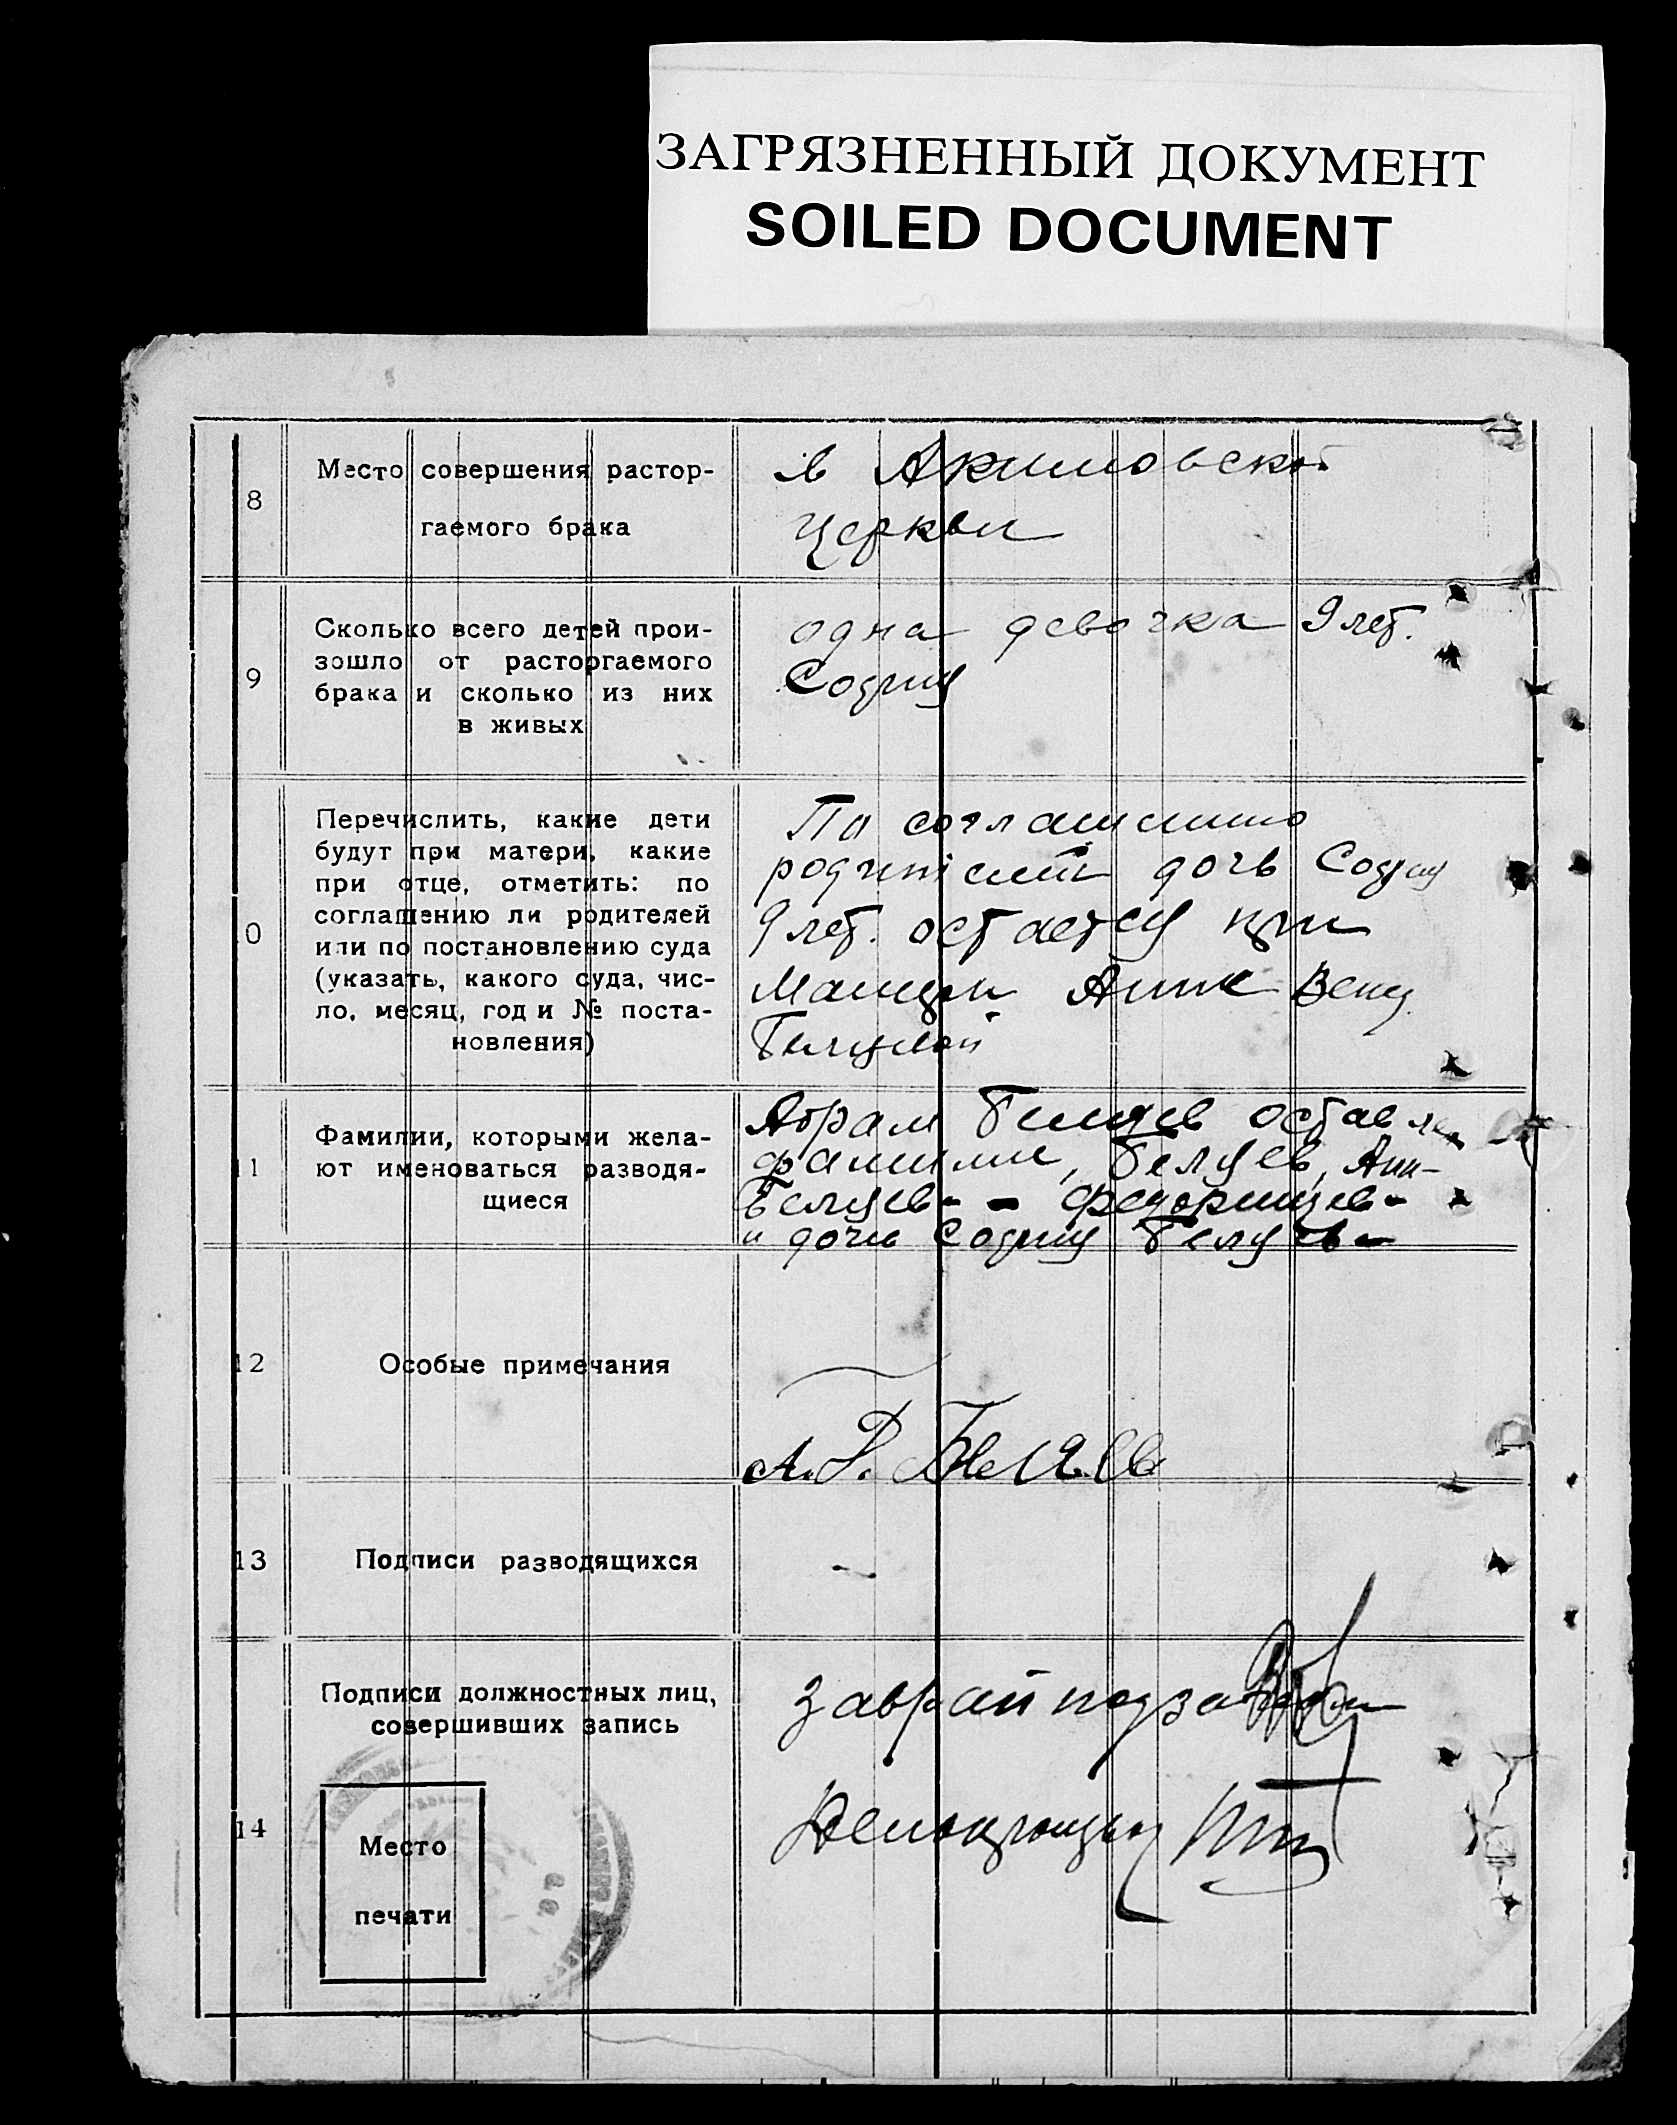 ЗАГРЯЗНЕННЫЙ ДОКУМЕНТ
SOILED DOCUMENT
8
Место совершения растор-
гаемого брака
в Акимовской
церкви
9
Сколько всего детей прои-
зошло от расторгаемого
брака и сколько из них
в живых
одна девочка 9 лет.
София
0
Перечислить, какие дети
будут при матери, какие
при отце, отметить: по
соглашению ли родителей
или по постановлению суда
(указать, какого суда, чис-
ло, месяц, год и № поста-
новления)
По соглашению
родителей дочь София
9 лет. остается при
матери Анне
11
Фамилии, которыми жела-
ют именоваться разводя-
щиеся
Абрам
фамилии, Белуев,
и дочь София
12
Особые примечания
13
Подписи разводящихся
14
Подписи должностных лиц,
совершивших запись
Место
печати
Делопроизвод